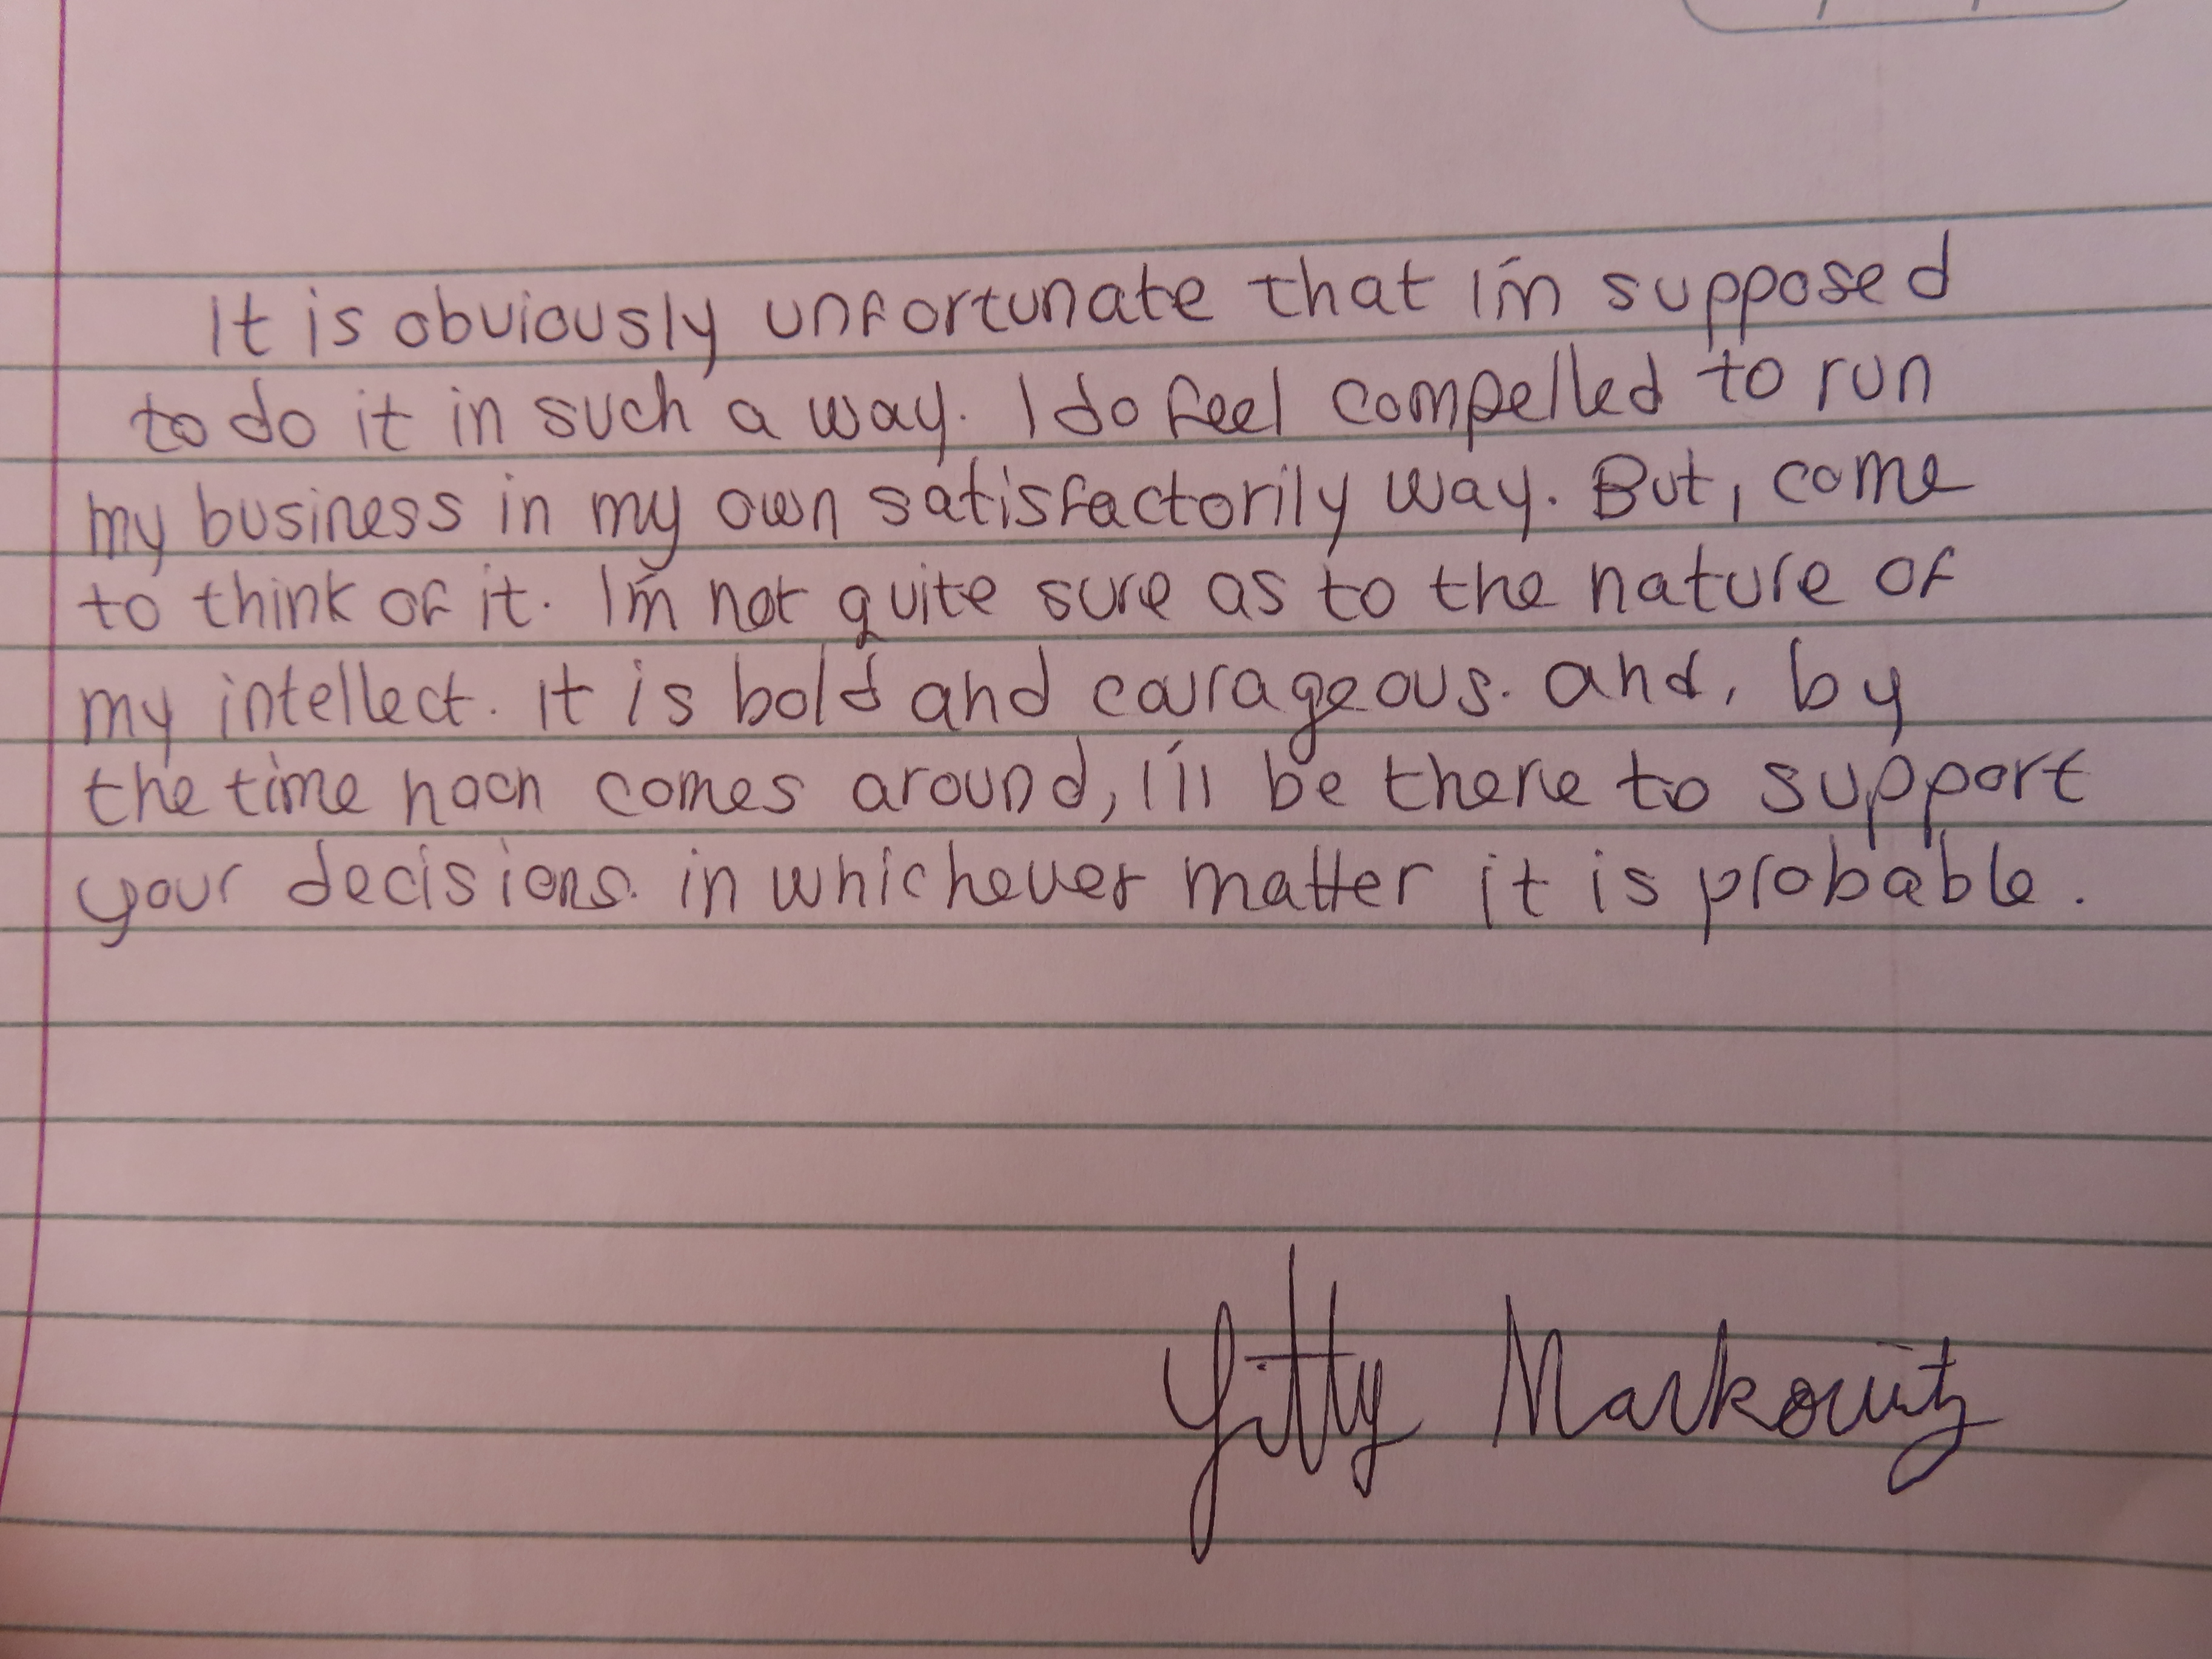 It is obviously unfortunate that I'm supposed
to do it in such a way. I do feel compelled to run
my business in my own satisfactorily way. But, come
to think of it. I'm not quite sure as to the nature of
my intellect. It is bold and courageous. and, by
the time noon comes around, I'll be there to support
your decisions. in whichever matter it is probable.
Yitty Markowitz